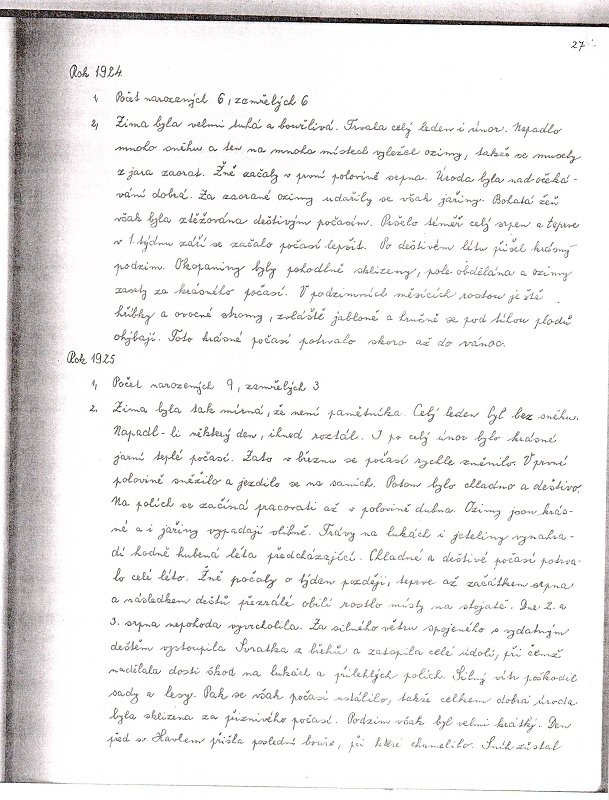 27
Rok 1924
1, Počet narozených 6, zemřelých 6
2, Zima byla velmi tuhá a bouřlivá. Trvala celý leden i únor. Napadlo
mnoho sněhu a ten na mnoha místech vyležel ozimy, takže se musely
z jara zaorat. Žně začaly v první polovině srpna. Úroda byla nad očeká-
vání dobrá. Za zaorané ozimy udařily se však jařiny. Bohatá žeň
však byla ztěžována deštivým počasím. Pršelo téměř celý srpen a teprve
v 1. týdnu září se začalo počasí lepšit. Po deštivém létu přišel krásný
podzim. Okopaniny byly pohodlně sklizeny, pole obdělána a ozimy
zasety za krásného počasí. V podzimních měsících rostou ještě
hřibky a ovocné stromy, zvláště jabloně a hrušně se pod tíhou plodů
ohýbají. Toto krásné počasí potrvalo skoro až do vánoc.
Rok 1925
1, Počet narozených 9, zemřelých 3
2. Zima byla tak mírná, že není pamětníka. Celý leden byl bez sněhu.
Napadl-li některý den, ihned roztál. I po celý únor bylo krásné
jarní teplé počasí. Zato v březnu se počasí rychle změnilo. V první
polovině sněžilo a jezdilo se na saních. Potom bylo chladno a deštivo.
Na polích se začíná pracovati až v polovině dubna. Ozimy jsou krás-
né a i jařiny vypadají slibně. Trávy na lukách i jeteliny vynahra-
dí hodně hubená léta předcházející. Chladné a deštivé počasí potrva-
lo celé léto. Žně počaly o týden později, teprve až začátkem srpna
a následkem dešťů přezrálé obilí rostlo místy na stojatě. Dne 2. a
3. srpna nepohoda vyvrcholila. Za silného větru spojeného s vydatným
deštěm vystoupila Svratka z břehů a zatopila celé údolí, při čemž
nadělala dosti škod na lukách a přilehlých polích. Silný vítr poškodil
sady a lesy. Pak se však počasí ustálilo, takže celkem dobrá úroda
byla sklizena za příznivého počasí. Podzim však byl velmi krátký. Den
před sv. Havlem přišla poslední bouře, při které chumelilo. Sníh zůstal